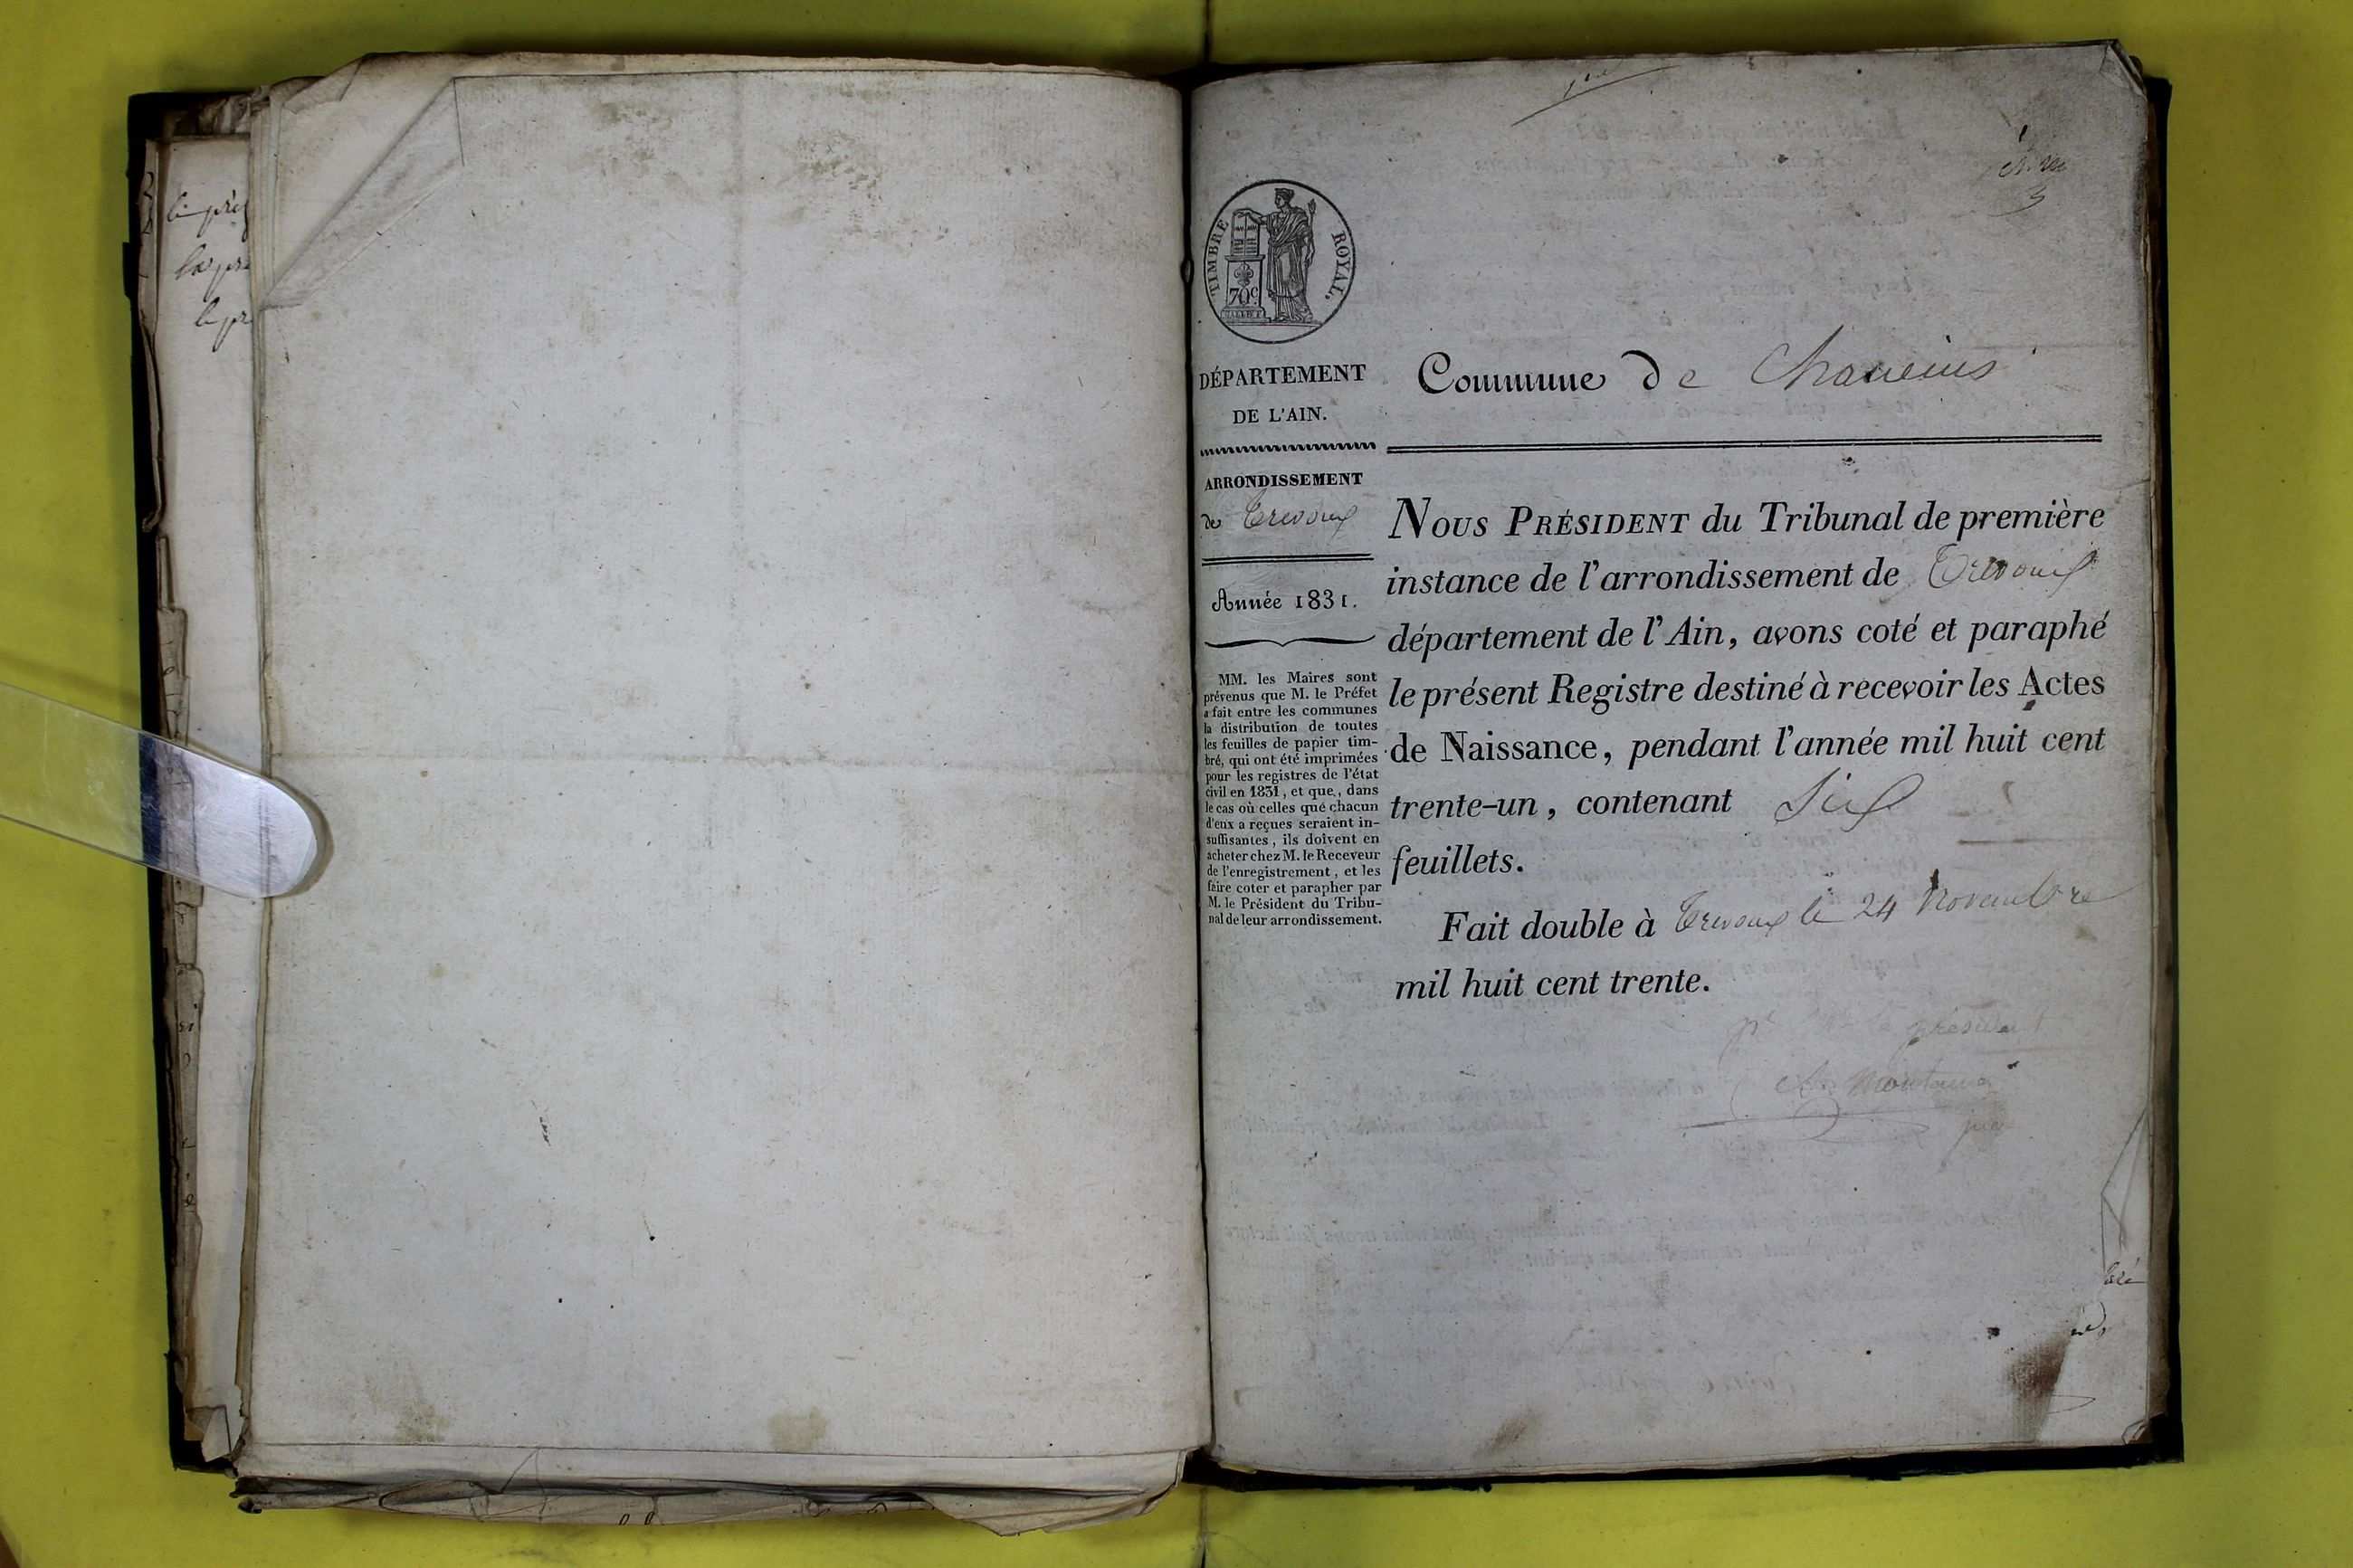 1er
TIMBRE ROYAL.
70c
DÉPARTEMENT
DE L'AIN.
ARRONDISSEMENT
de Trevoux
Année 1831.
MM. les Maires sont
prévenus que M. le Préfet
a fait entre les communes
la distribution de toutes
les feuilles de papier tim-
bré, qui ont été imprimées
pour les registres de l'état
civil en 1831, et que, dans
le cas où celles que chacun
d'eux a reçues seraient in-
suffisantes, ils doivent en
acheter chez M. le Receveur
de l'enregistrement, et les
faire coter et parapher par
M. le Président du Tribu-
nal de leur arrondissement.
Commune de Chaneins
NOUS PRÉSIDENT du Tribunal de première
instance de l'arrondissement de Trevoux
département de l'Ain, avons coté et paraphé
le présent Registre destiné à recevoir les Actes
de Naissance, pendant l'année mil huit cent
trente-un, contenant Six
feuillets.
Fait double à Trevoux le 24 Novembre
mil huit cent trente.
président